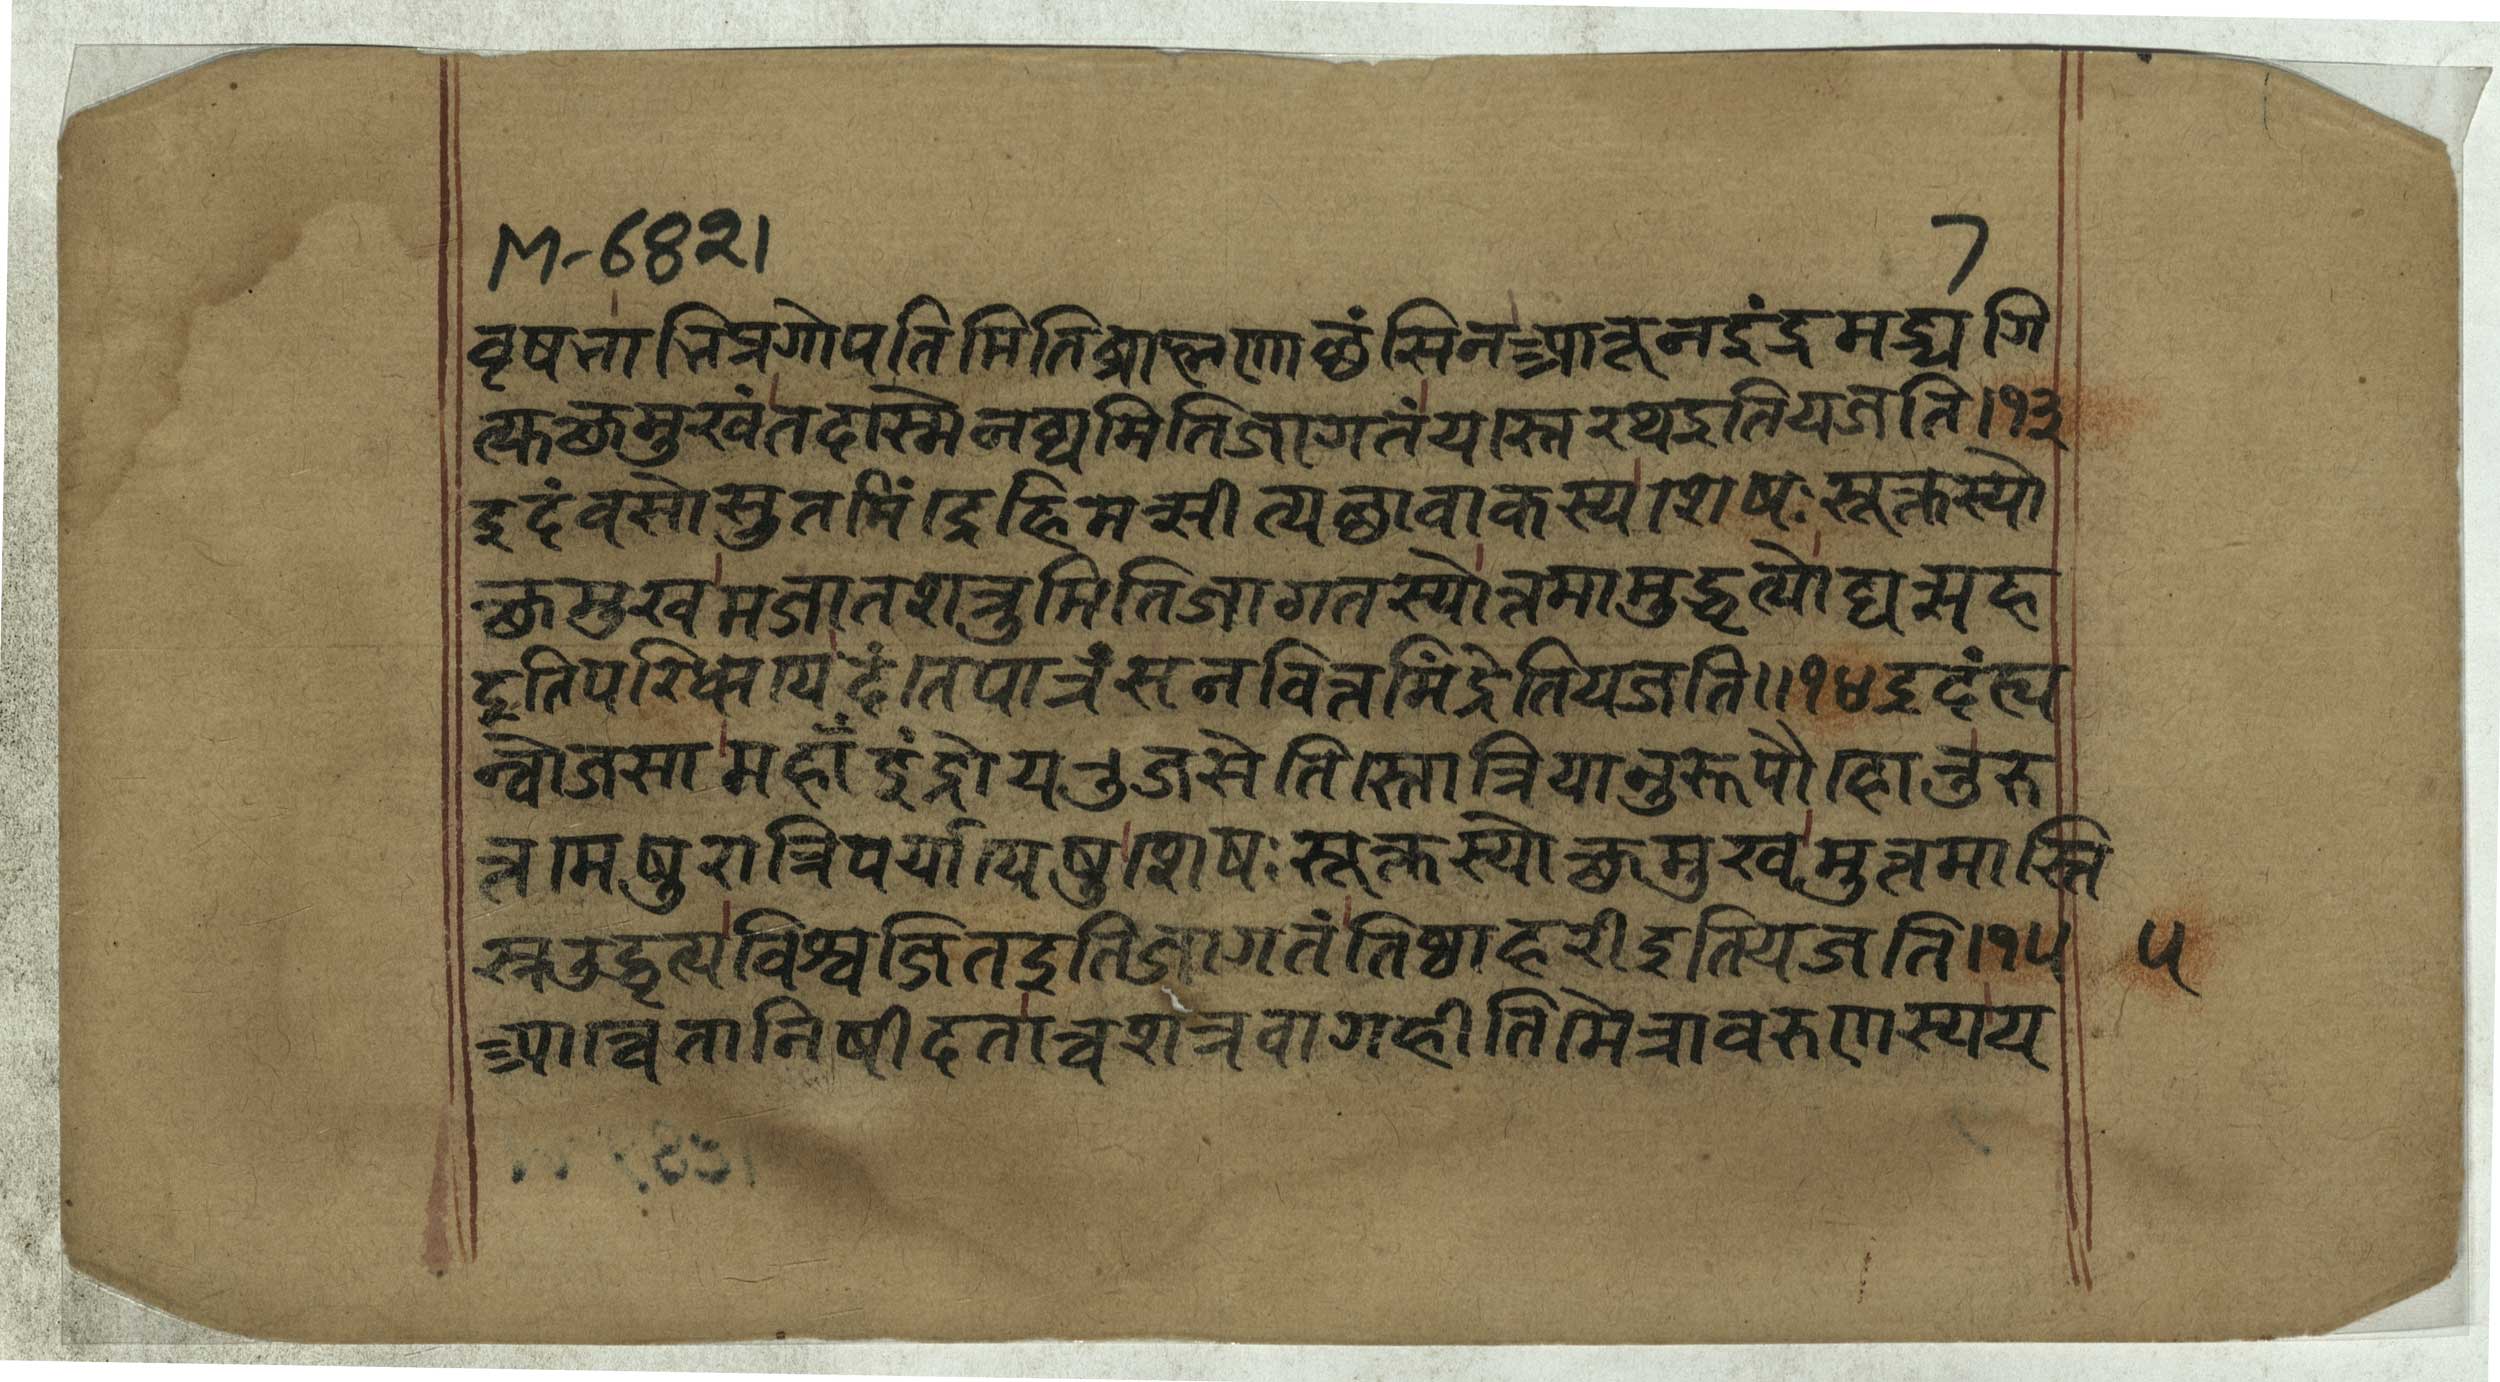 M-6821 7
वृषभाभिप्रगोपतिमितिब्राह्मणाछंसिनआतूनइंद्रमद्र्यगि
त्युक्थमुखंतदस्मैनव्यमितिजागतंयस्तेरथइतियजति।१३
इदंवसोसुतमिंद्रेहिमत्सीत्यछावाकस्यशेषःसूक्तस्यो
क्थमुखमजातशत्रुमितिजागतस्योत्तमामुद्धृत्योद्यत्सह
इतिपरिधायेदंतेपात्रंसनवित्तमिंद्रेतियजति॥१४इदंह्य
न्वोजसामहाँइंद्रोयउजसेतिस्तोत्रियानुरूपौहोतुरु
त्तमेषुरात्रिपर्यायेषुशेषःसूक्तस्योक्थमुखमुत्तमास्ति
स्रउद्धृत्यविश्वजितइतिजागतंतिष्ठाहरीइतियजति।१५ ५
आत्वेतानिषीदतात्वशत्रवागहीतिमैत्रावरुणस्यय